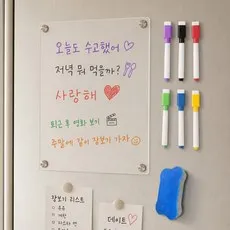 오늘도 수고했어
저녁 뭐 먹을까?
사랑해
퇴근 후 영화 보기
주말에 같이 장보기 가자
장보기 리스트
우유
계란
데이트